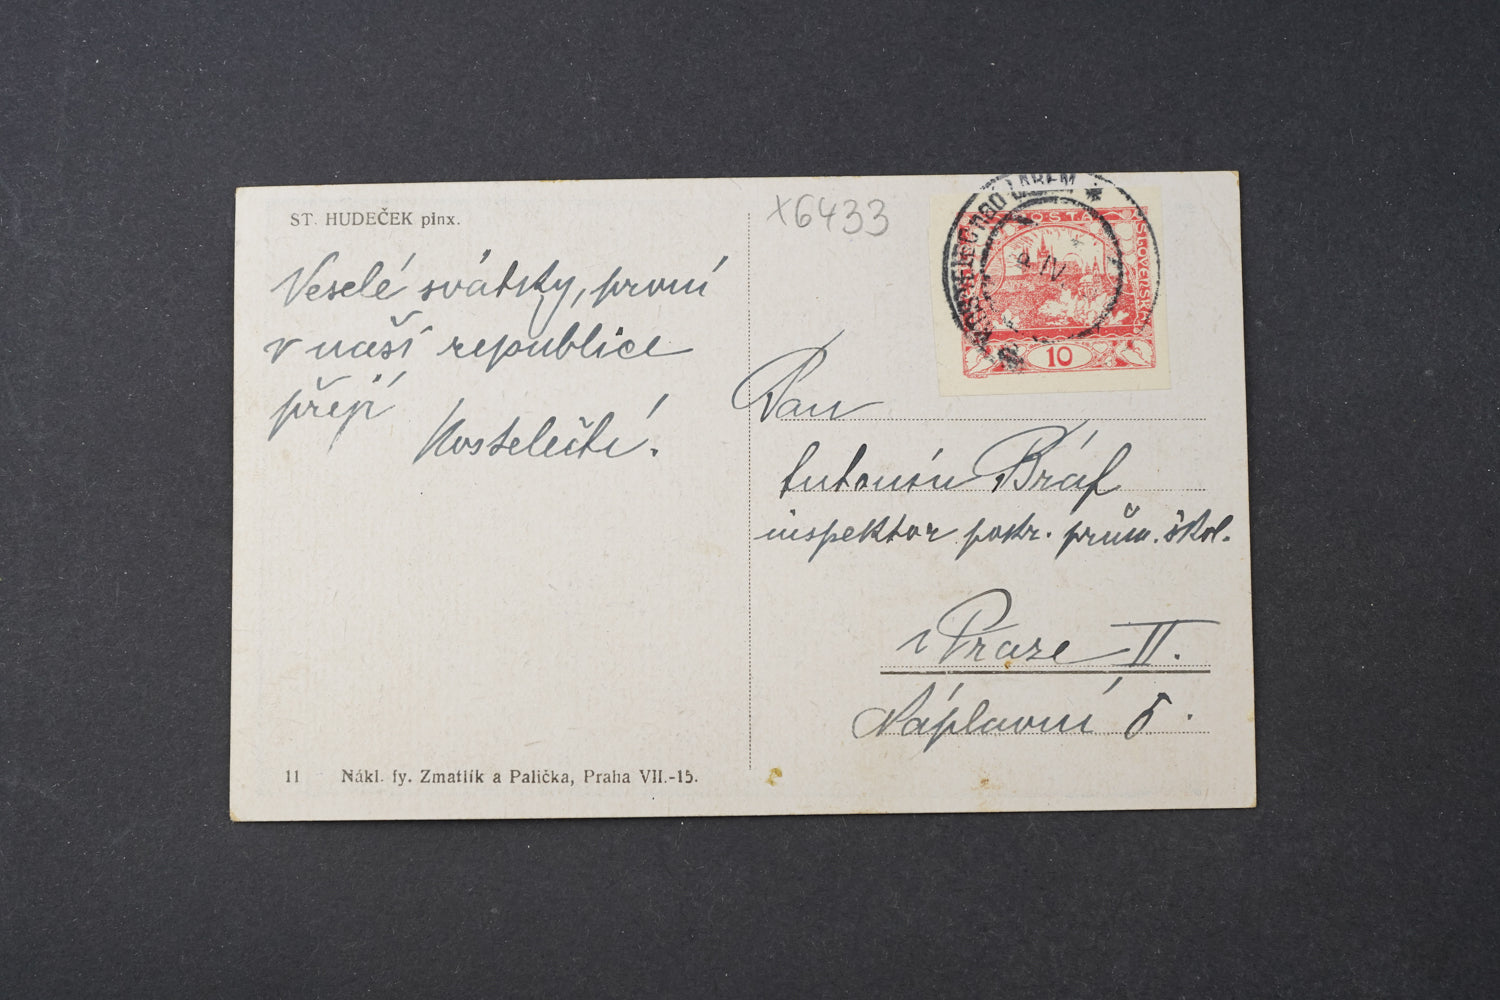 ST. HUDEČEK pinx.
x6433
Veselé svátky, první
v naší republice
přejí
Kostelečtí.
POSTA
SLOVENSKÁ
10
IV
Pan
Antonín Bráf
inspektor pokr. prům. škol.
v Praze II.
Náplavní 5.
11 Nákl. fy. Zmatlík a Palička, Praha VII.-15.